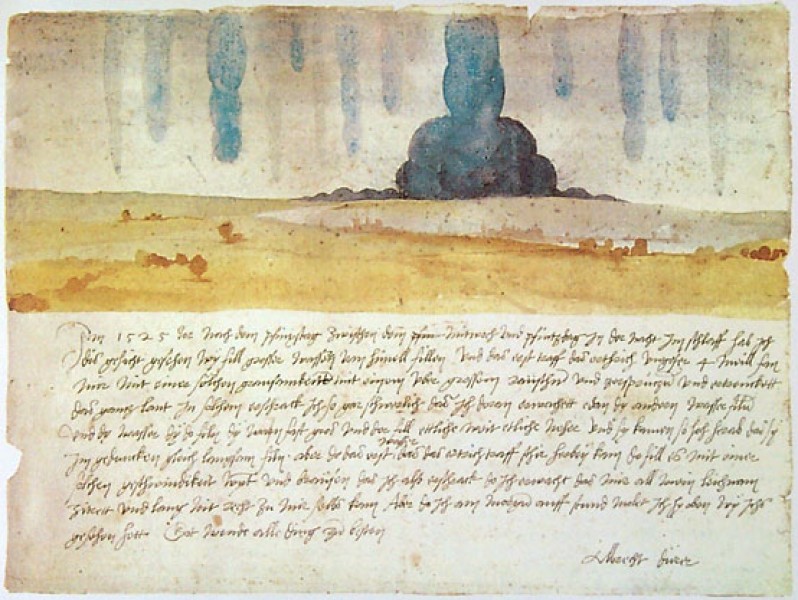 Im 1525 Jor nach dem pfinxstag zwischen dem Mitwoch und pfintzdag in der nacht im schlaff hab ich
dis gesicht gesehen wy fill grosser wassern vom himell fillen Und das erst traff das erthrich ungefer 4 meill fan
mir mit einer solchen grausamkeitt mit einem uber grossem raüschn und zersprützn und ertrenckett
das gantz lant In solchem erschrack ich so gar schwerlich das ich doran erwachett e dan dy andern wasser filn
Und dy wasser dy do filn dy warn fast gros und der fill ettliche weit etliche neher und sy kamen so hoch herab das sy
im gedancken gleich langsam filn. aber do das erst wasser das das ertrich traff schir herbey kam do fill es mit einer
solchen geschwindikeit wynt und braüsen das ich also erschrack do ich erwacht das mir all mein leichnam
zitrett und lang nit recht zu mir selbs kam Aber do ich am morgn auff stund molet ich hy oben wy ichs
gesehen hett. Got wende alle ding zu besten
Albrecht dürer